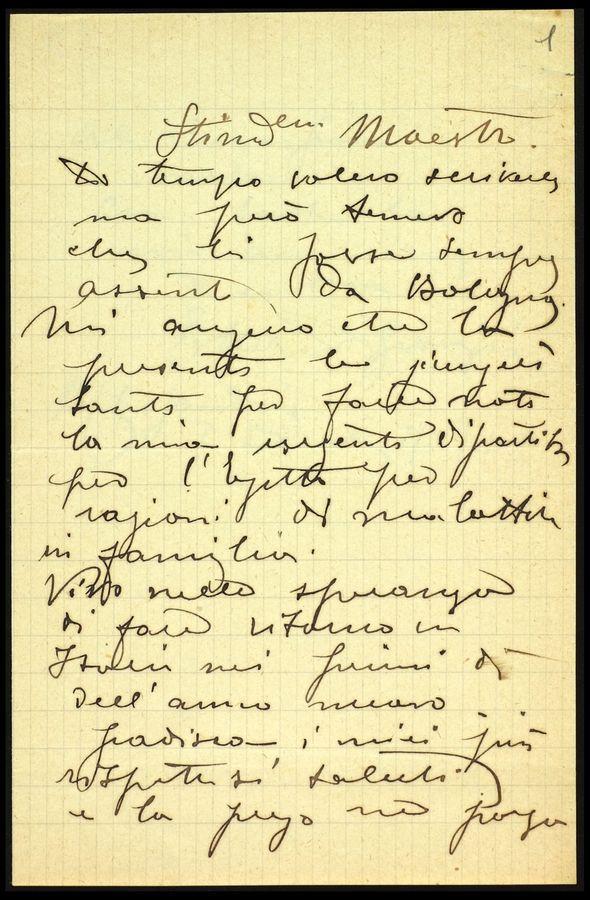 1
Stim.mo Maestro.
Da tempo volevo scriverle
ma però temevo
che Ei fosse sempre
assente da Bologna.
Mi auguro che la
presente la
tanto per farle noto
la mia urgente dipartita
per l'Egitto per
ragioni di malattia
in famiglia.
Vivo nella speranza
di fare ritorno in
Italia nei primi dì
dell'anno nuovo
gradisca i miei più
rispettosi saluti
e la prego ne porga